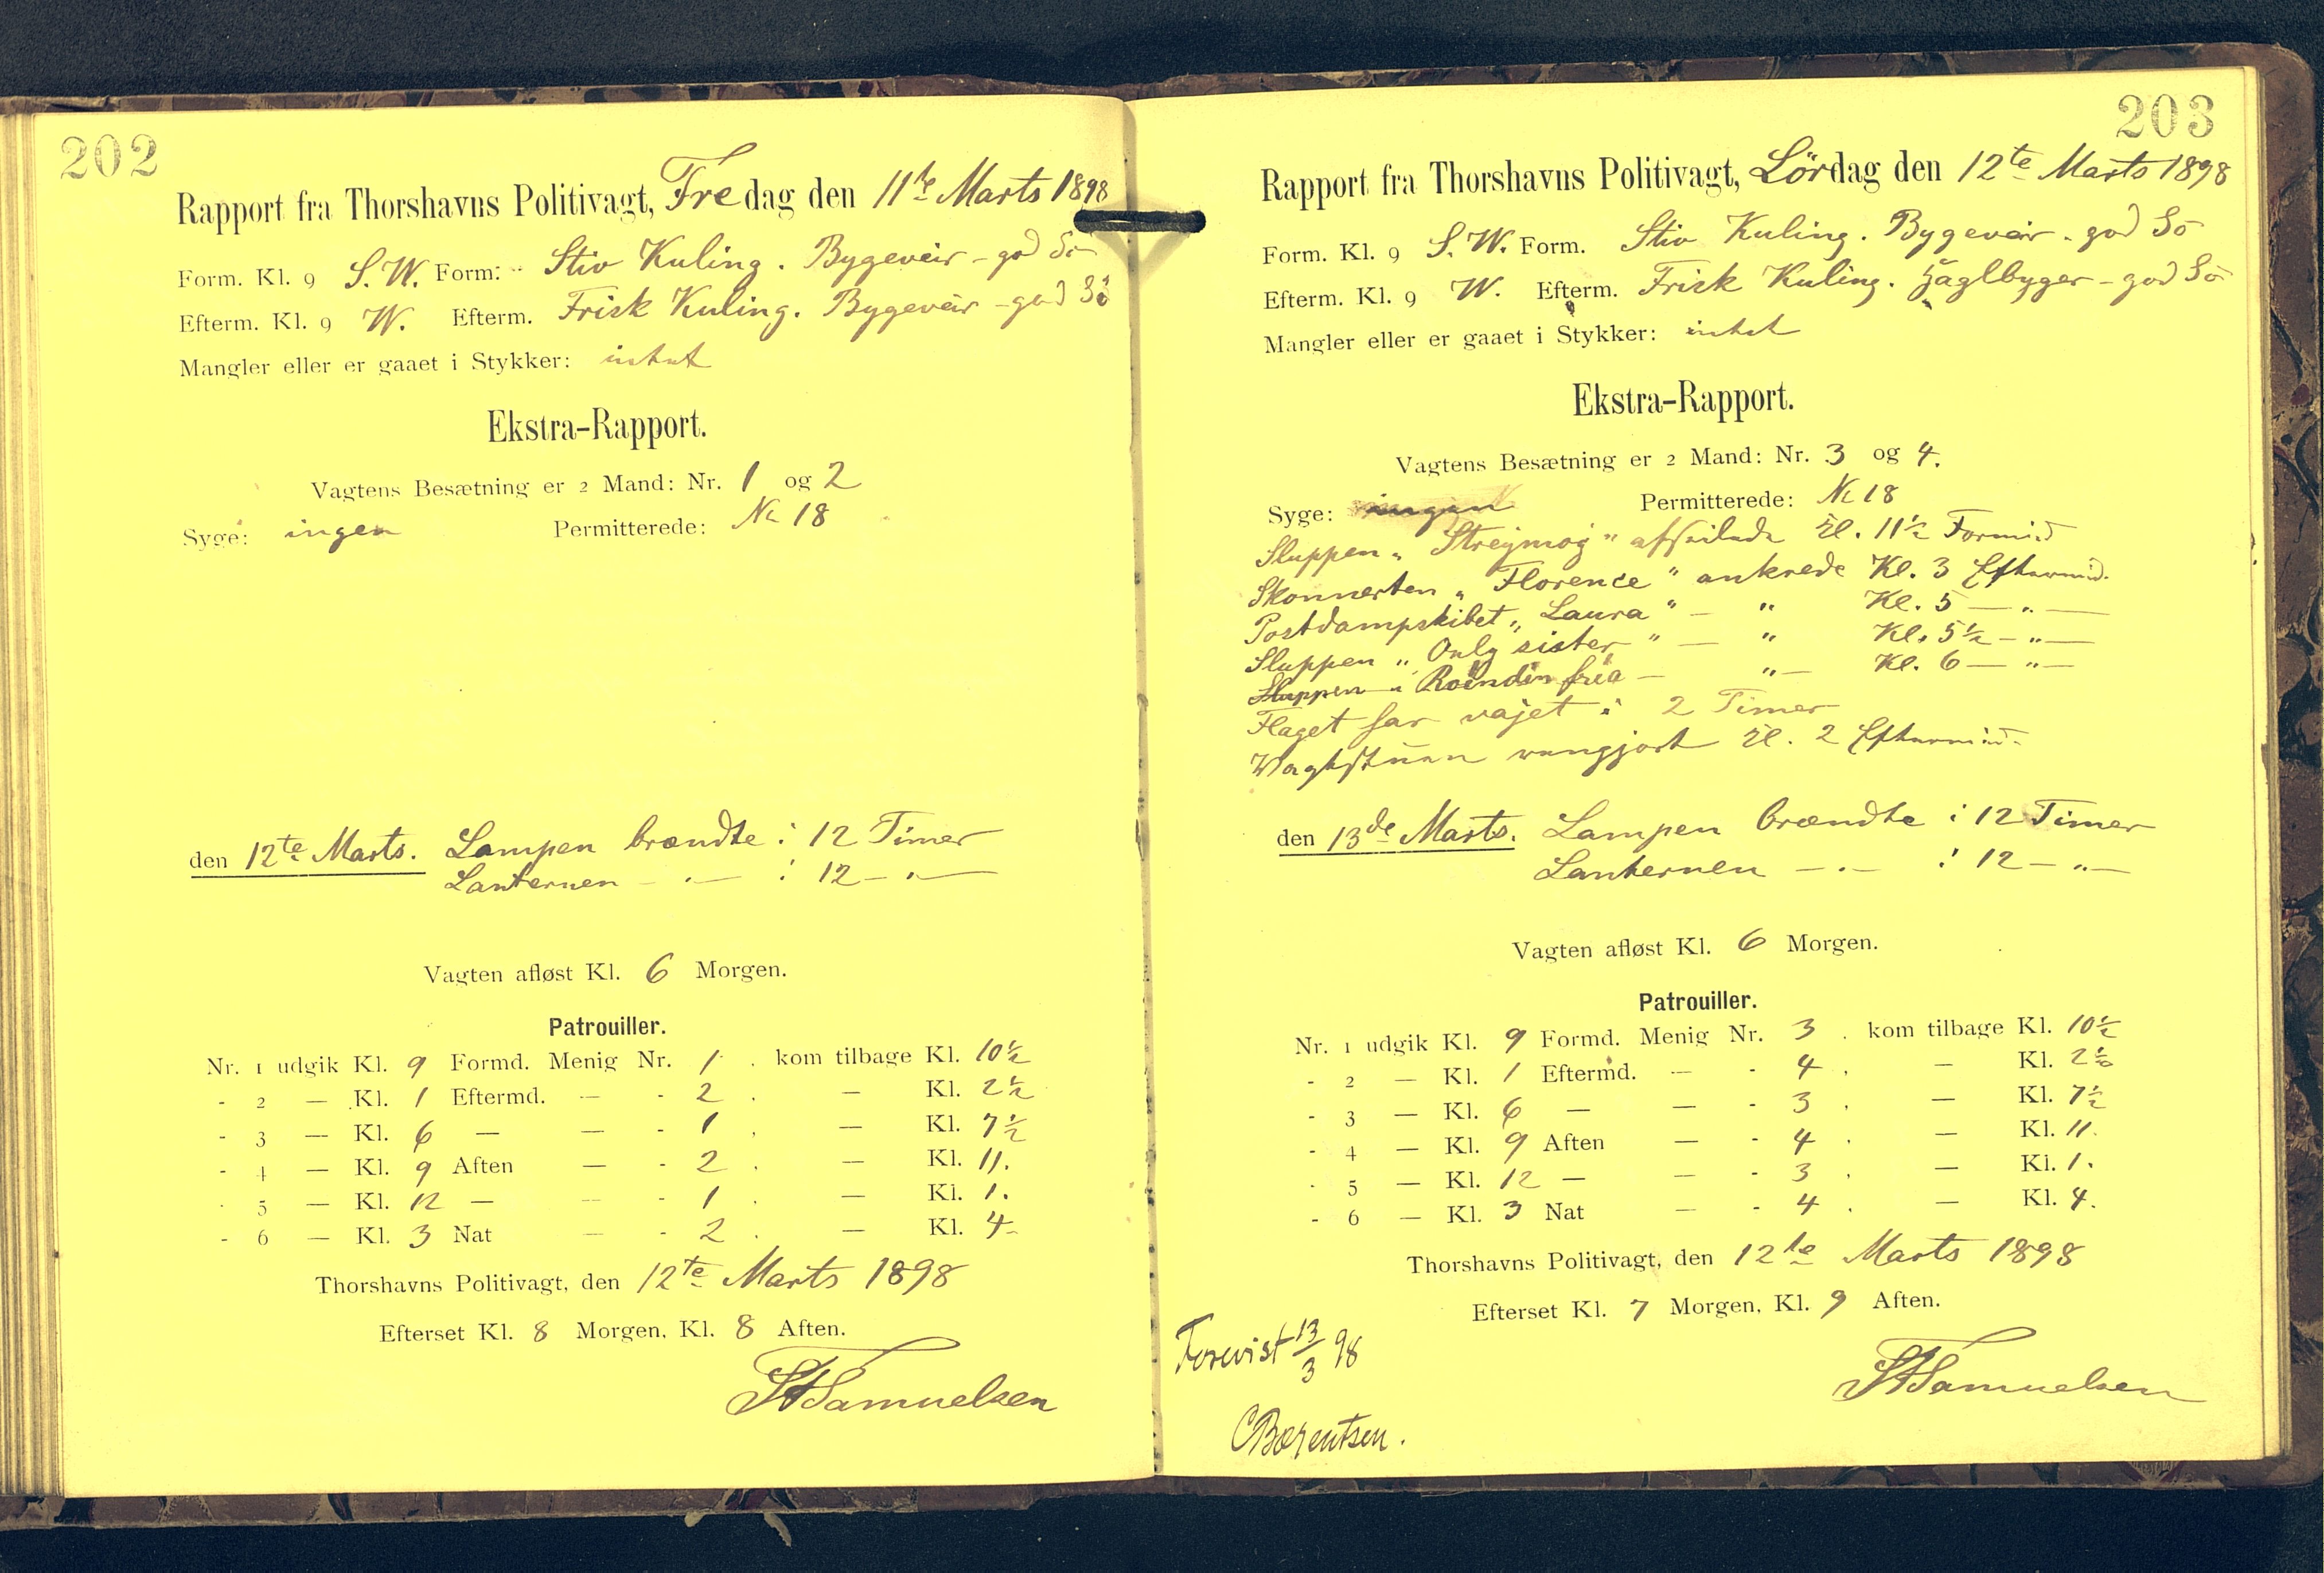 202
Rapport fra Thorshavns Politivagt, Fredag den 11te Marts 1898
Form. Kl. 9 S.W. Form: Stiv Kuling. Bygeveir - god Sö
Efterm. Kl. 9 W. Efterm. Frisk Kuling. Bygeveir - god Sö
Mangler eller er gaaet i Stykker: intet
Ekstra-Rapport.
Vagtens Besætning er 2 Mand: Nr. 1 og 2
Syge: ingen Permitterede: No 18
den 12te Marts. Lampen brændte i 12 Timer
Lanternen - " - i 12 - " -
Vagten afløst Kl. 6 Morgen.
Patrouiller.
Nr. 1 udgik Kl. 9 Formd. Menig Nr. 1. kom tilbage Kl. 10½
- 2 — Kl. 1 Eftermd. — - 2. — Kl. 2½
- 3 — Kl. 6 — — - 1. — Kl. 7½
- 4 — Kl. 9 Aften — - 2. — Kl. 11.
- 5 — Kl. 12 — — - 1. — Kl. 1.
- 6 — Kl. 3 Nat — - 2. — Kl. 4-
Thorshavns Politivagt, den 12te Marts 1898
Efterset Kl. 8 Morgen, Kl. 8 Aften.
Samuelsen
203
Rapport fra Thorshavns Politivagt, Lördag den 12te Marts 1898
Form. Kl. 9 S.W. Form. Stiv Kuling. Bygeveir - god Sö
Efterm. Kl. 9 W. Efterm. Frisk Kuling. Haglbyger - god Sö
Mangler eller er gaaet i Stykker: intet
Ekstra-Rapport.
Vagtens Besætning er 2 Mand: Nr. 3 og 4.
Syge: ingen Permitterede: No 18
Sluppen „Streymoy" afseilede Kl. 11½ Formid
Skonnerten „Florence" ankrede Kl. 3 Eftermid.
Postdampskibet „Laura" — " Kl. 5 — " —
Sluppen „Only sister" — " Kl. 5½ — " —
Sluppen „Roindin fria — " — Kl. 6 — " —
Flaget har vajet i 2 Timer
Vagtstuen rengjort Kl. 2 Eftermid.
den 13de Marts. Lampen brændte i 12 Timer
Lanternen - " - i 12 - " -
Vagten afløst Kl. 6 Morgen.
Patrouiller.
Nr. 1 udgik Kl. 9 Formd. Menig Nr. 3. kom tilbage Kl. 10½
- 2 — Kl. 1 Eftermd. — - 4. — Kl. 2½
- 3 — Kl. 6 — — - 3. — Kl. 7½
- 4 — Kl. 9 Aften — - 4. — Kl. 11.
- 5 — Kl. 12 — — - 3. — Kl. 1.
- 6 — Kl. 3 Nat — - 4. — Kl. 4.
Thorshavns Politivagt, den 12te Marts 1898
Efterset Kl. 7 Morgen, Kl. 9 Aften.
Forevist 13/3 98
Samuelsen
CBærentsen.